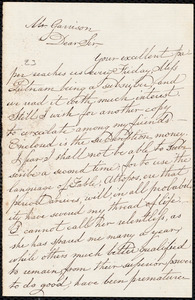 Mr Garrison
Dear Sir
Your excellent pa
per reaches us every Friday, Mrs
Putnam being a subscriber, and
we read it with much interest
Still I wish for another copy
to circulate among my friends
Enclosed is the subscription money.
I fear I shall not be able to subs
cribe a second time for to use the
language of Fable, Atropos, ere that
period arrives, will, in all probabil
ity have severed my thread of life
I cannot call her relentless, as
she has spared me many a year
while others much better qualified
to remain from their superior power
to do good, have been premature